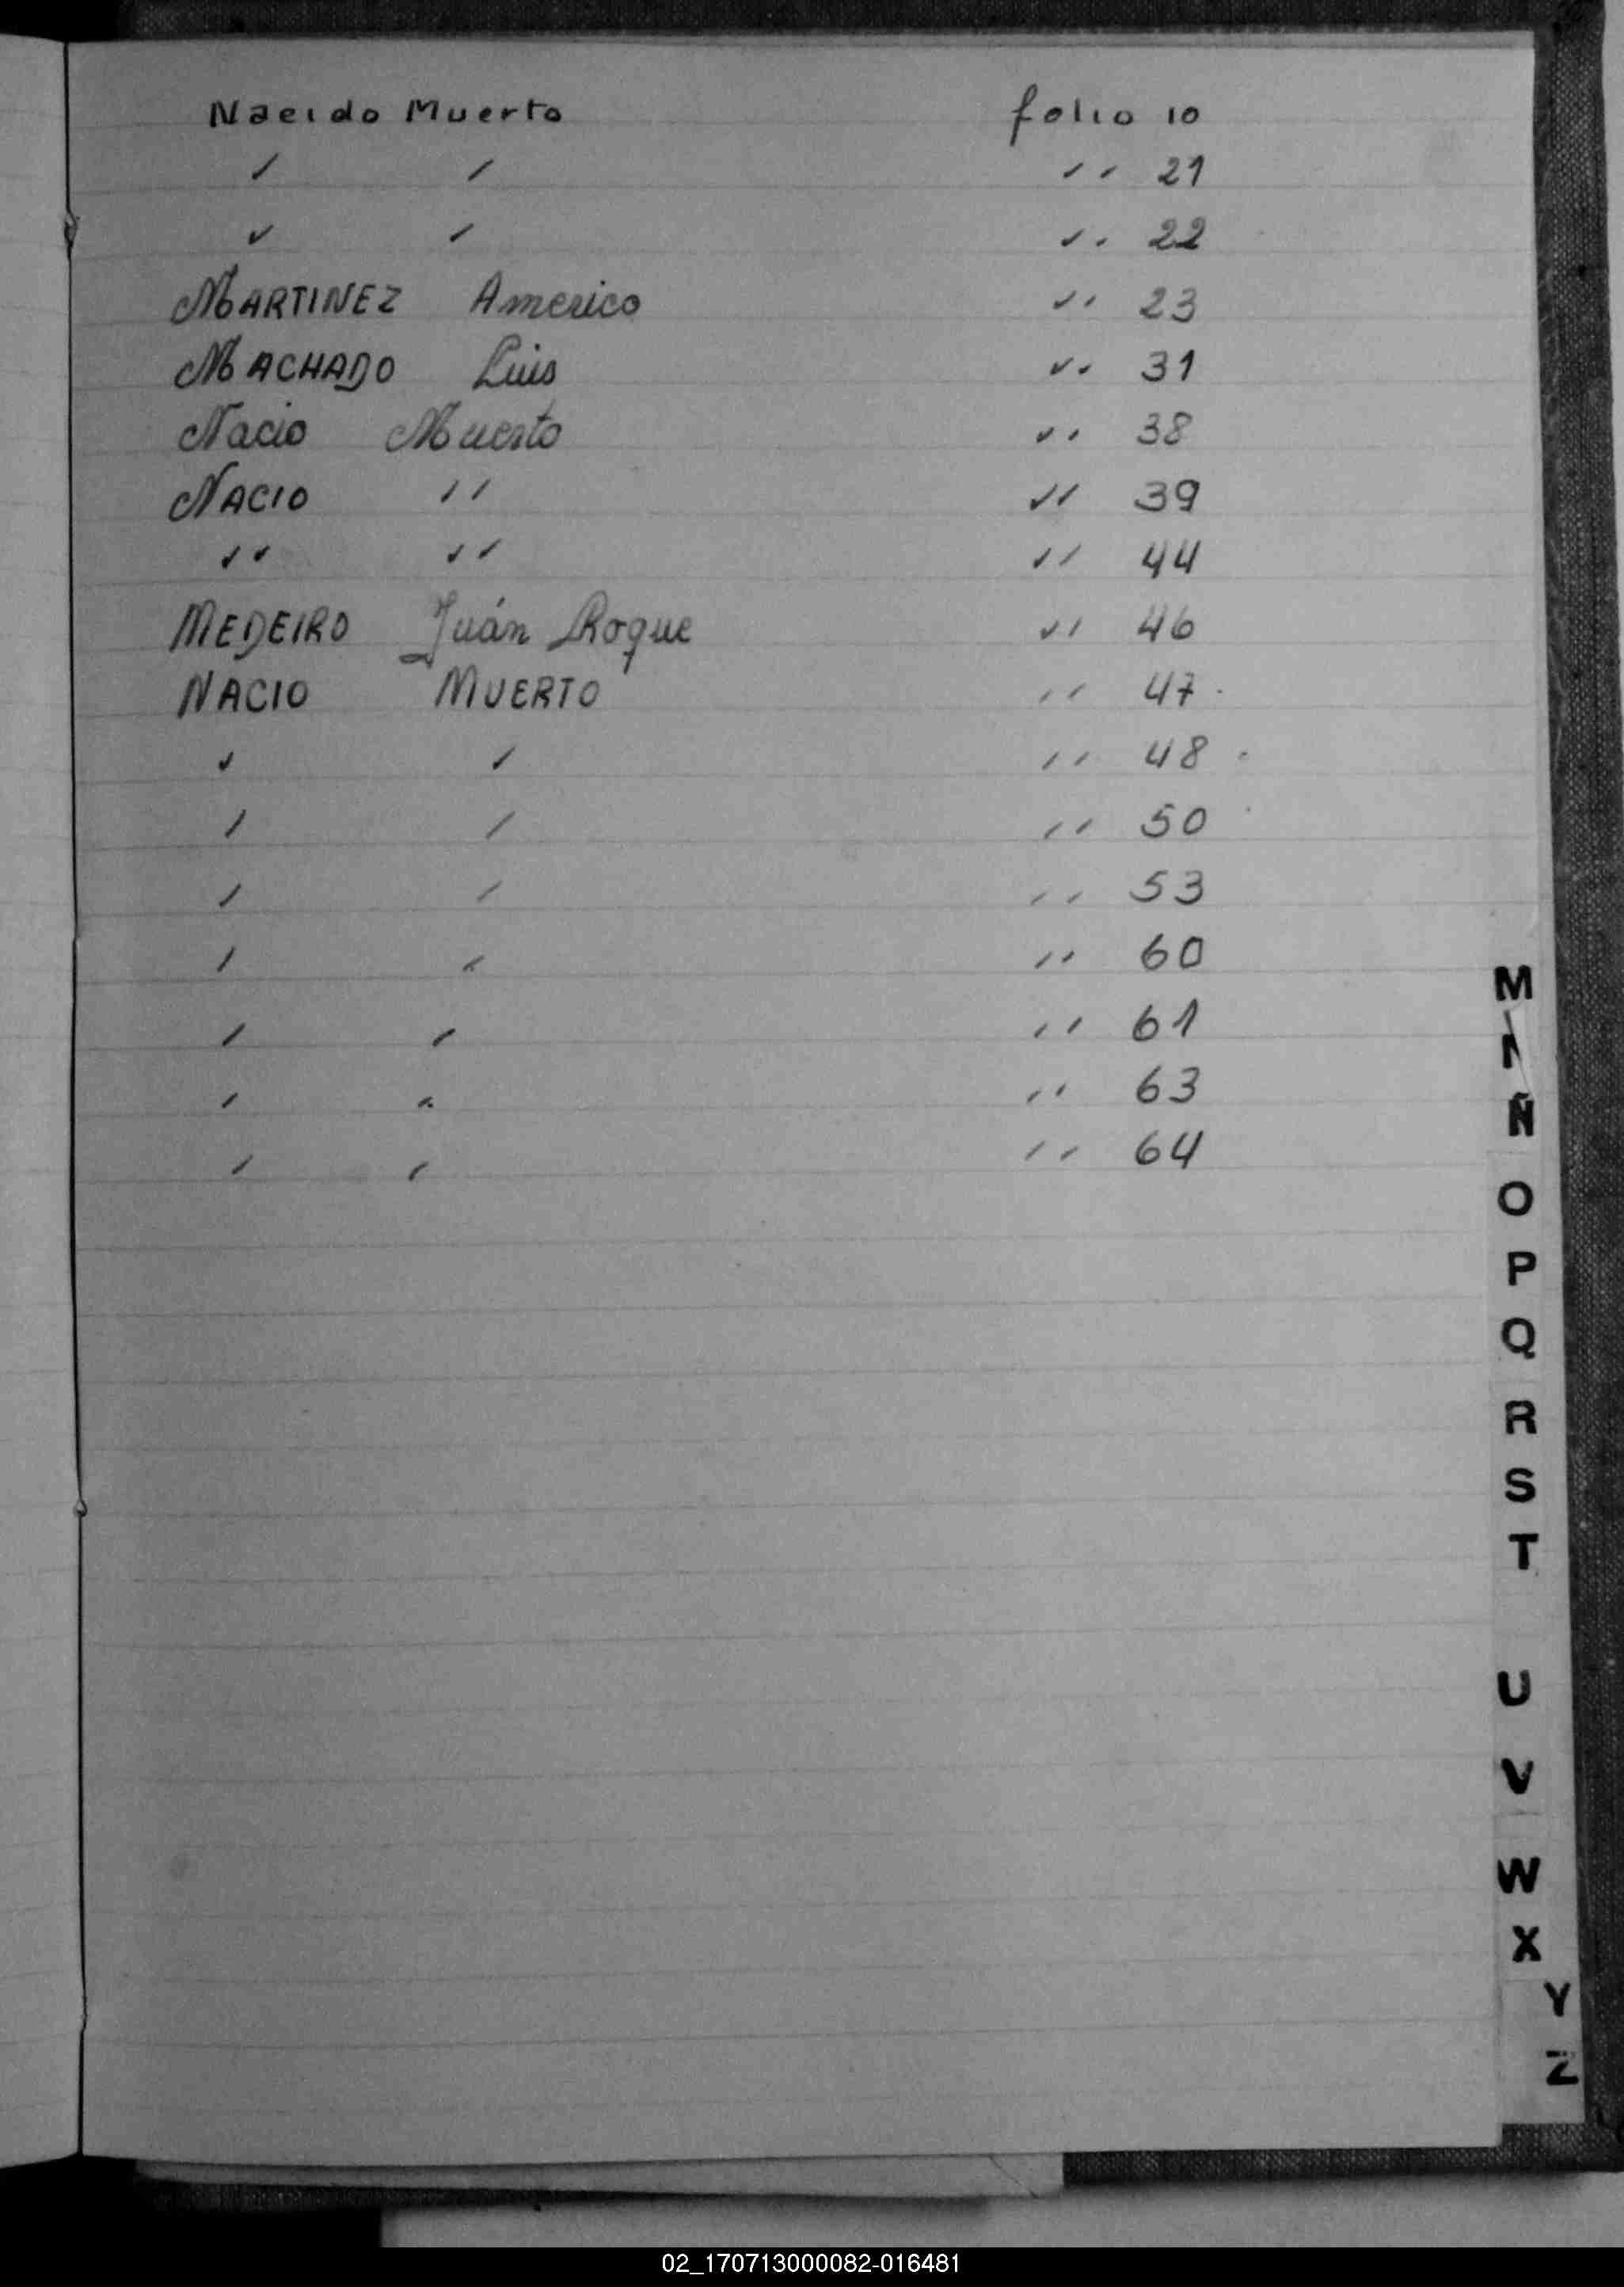 Nacido Muerto folio 10
✓ ✓ ✓✓ 21
✓ ✓ ✓✓ 22
MARTINEZ Americo ✓✓ 23
MACHADO Luis ✓✓ 31
Nacio Muerto ✓✓ 38
NACIO '' '' 39
'' '' '' 44
MEDEIRO Juán Roque '' 46
NACIO MUERTO '' 47
' ' '' 48
' ' '' 50
' ' '' 53
' ' '' 60
' ' '' 61
' ' '' 63
' ' '' 64
M
Ñ
O
P
Q
R
S
T
U
V
W
X
Y
Z
02_170713000082-016481